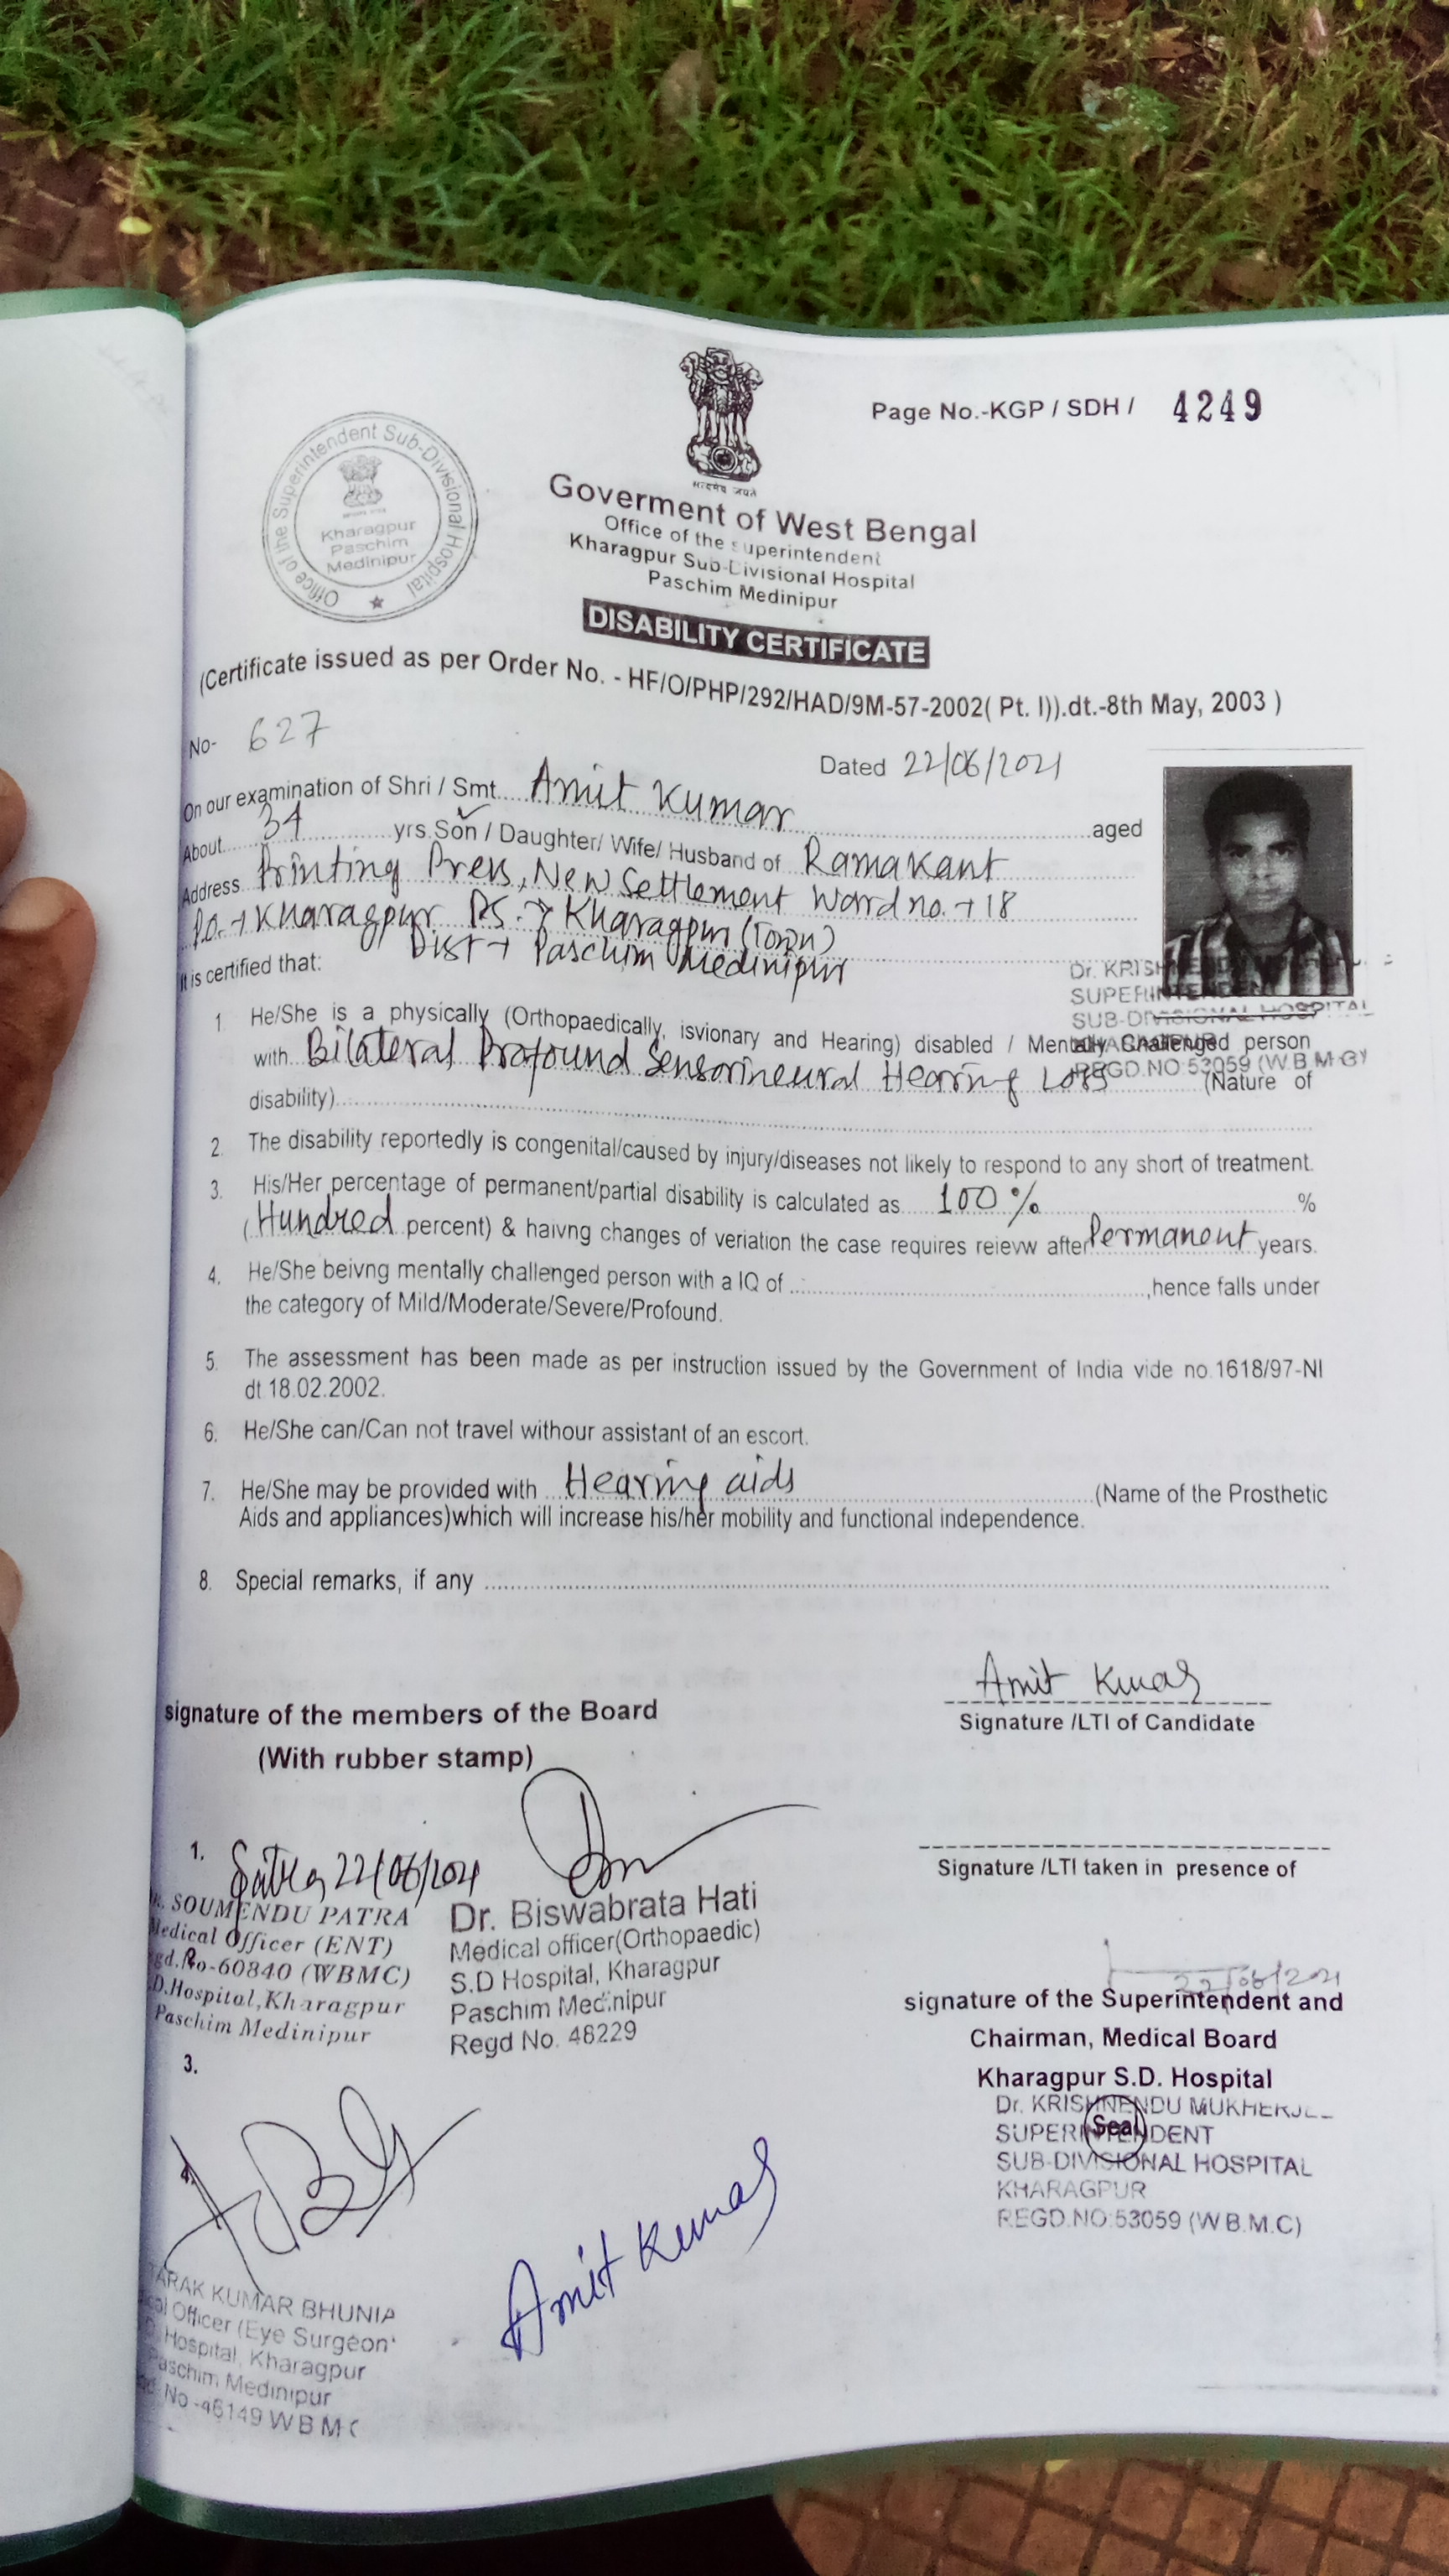 Page No.-KGP / SDH / 4249
Office of the Superintendent Sub-Divisional Hospital
Kharagpur
Paschim
Medinipur
सत्यमेव जयते
Goverment of West Bengal
Office of the superintendent
Kharagpur Sub-Divisional Hospital
Paschim Medinipur
DISABILITY CERTIFICATE
(Certificate issued as per Order No. - HF/O/PHP/292/HAD/9M-57-2002( Pt. I)).dt.-8th May, 2003 )
No- 627
Dated 22/06/2021
On our examination of Shri / Smt. Amit Kumar aged
About 34 yrs. Son / Daughter/ Wife/ Husband of Ramakant
Address Printing Press, New Settlement Ward no. → 18
P.O. → Kharagpur PS. → Kharagpur (Town)
Dist → Paschim Medinipur
It is certified that:
Dr. KRISHNENDU
SUPERINTENDENT
SUB-DIVISIONAL HOSPITAL
KHARAGPUR
REGD.NO:53059 (W.B.M.C)
1 He/She is a physically (Orthopaedically, isvionary and Hearing) disabled / Mentally Challenged person
with Bilateral Profound Sensorineural Hearing Loss (Nature of
disability)
2. The disability reportedly is congenital/caused by injury/diseases not likely to respond to any short of treatment.
3. His/Her percentage of permanent/partial disability is calculated as 100 % %
(Hundred percent) & haivng changes of veriation the case requires reievw after Permanent years.
4. He/She beivng mentally challenged person with a IQ of ,hence falls under
the category of Mild/Moderate/Severe/Profound.
5. The assessment has been made as per instruction issued by the Government of India vide no.1618/97-NI
dt 18.02.2002.
6. He/She can/Can not travel withour assistant of an escort.
7. He/She may be provided with Hearing aids (Name of the Prosthetic
Aids and appliances)which will increase his/her mobility and functional independence.
8. Special remarks, if any
Amit Kumar
Signature /LTI of Candidate
signature of the members of the Board
(With rubber stamp)
Signature /LTI taken in presence of
1. 22/06/2021
SOUMENDU PATRA
Medical Officer (ENT)
gd.No-60840 (WBMC)
.D.Hospital,Kharagpur
Paschim Medinipur
Dr. Biswabrata Hati
Medical officer(Orthopaedic)
S.D Hospital, Kharagpur
Paschim Medinipur
Regd No. 48229
22/06/2021
signature of the Superintendent and
Chairman, Medical Board
Kharagpur S.D. Hospital
Seal
Dr. KRISHNENDU MUKHERJEE
SUPERINTENDENT
SUB-DIVISIONAL HOSPITAL
KHARAGPUR
REGD.NO:53059 (W.B.M.C)
3.
4.
TARAK KUMAR BHUNIA
Officer (Eye Surgeon)
Hospital, Kharagpur
Paschim Medinipur
No -46149 W B M C
Amit Kumar